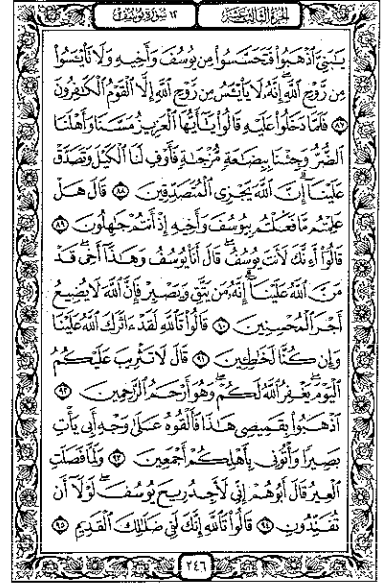 الجزء الثالث عشر ١٢ سورة يوسف
يَٰبَنِيَّ ٱذْهَبُوا۟ فَتَحَسَّسُوا۟ مِن يُوسُفَ وَأَخِيهِ وَلَا تَا۟يْـَٔسُوا۟
مِن رَّوْحِ ٱللَّهِ ۖ إِنَّهُۥ لَا يَا۟يْـَٔسُ مِن رَّوْحِ ٱللَّهِ إِلَّا ٱلْقَوْمُ ٱلْكَٰفِرُونَ
٨٧ فَلَمَّا دَخَلُوا۟ عَلَيْهِ قَالُوا۟ يَٰٓأَيُّهَا ٱلْعَزِيزُ مَسَّنَا وَأَهْلَنَا
ٱلضُّرُّ وَجِئْنَا بِبِضَٰعَةٍ مُّزْجَىٰةٍ فَأَوْفِ لَنَا ٱلْكَيْلَ وَتَصَدَّقْ
عَلَيْنَآ ۖ إِنَّ ٱللَّهَ يَجْزِى ٱلْمُتَصَدِّقِينَ ٨٨ قَالَ هَلْ
عَلِمْتُم مَّا فَعَلْتُم بِيُوسُفَ وَأَخِيهِ إِذْ أَنتُمْ جَٰهِلُونَ ٨٩
قَالُوٓا۟ أَءِنَّكَ لَأَنتَ يُوسُفُ ۖ قَالَ أَنَا۠ يُوسُفُ وَهَٰذَآ أَخِى ۖ قَدْ
مَنَّ ٱللَّهُ عَلَيْنَآ ۖ إِنَّهُۥ مَن يَتَّقِ وَيَصْبِرْ فَإِنَّ ٱللَّهَ لَا يُضِيعُ
أَجْرَ ٱلْمُحْسِنِينَ ٩٠ قَالُوا۟ تَٱللَّهِ لَقَدْ ءَاثَرَكَ ٱللَّهُ عَلَيْنَا
وَإِن كُنَّا لَخَٰطِـِٔينَ ٩١ قَالَ لَا تَثْرِيبَ عَلَيْكُمُ
ٱلْيَوْمَ ۖ يَغْفِرُ ٱللَّهُ لَكُمْ ۖ وَهُوَ أَرْحَمُ ٱلرَّٰحِمِينَ ٩٢
ٱذْهَبُوا۟ بِقَمِيصِى هَٰذَا فَأَلْقُوهُ عَلَىٰ وَجْهِ أَبِى يَأْتِ
بَصِيرًا وَأْتُونِى بِأَهْلِكُمْ أَجْمَعِينَ ٩٣ وَلَمَّا فَصَلَتِ
ٱلْعِيرُ قَالَ أَبُوهُمْ إِنِّى لَأَجِدُ رِيحَ يُوسُفَ ۖ لَوْلَآ أَن
تُفَنِّدُونِ ٩٤ قَالُوا۟ تَٱللَّهِ إِنَّكَ لَفِى ضَلَٰلِكَ ٱلْقَدِيمِ ٩٥
٢٤٦